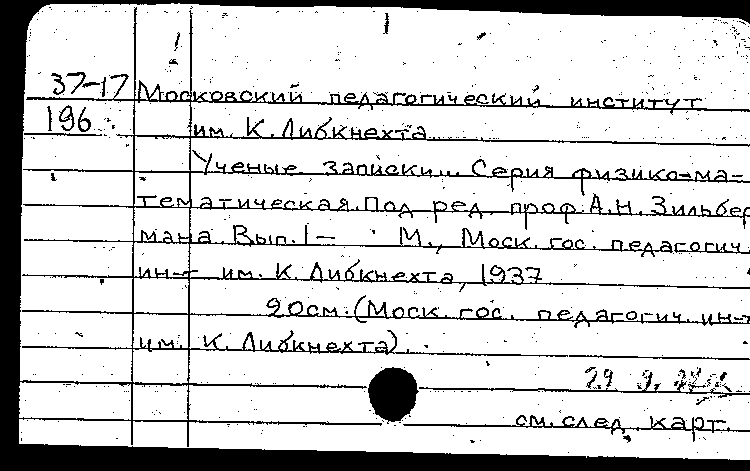 37-17 Московский педагогический институт
196 им. К. Либкнехта
Ученые записки... Серия физико-ма-
тематическая. Под ред. проф. А.Н. Зильбер
мана. Вып. 1- М., Моск. гос. педагогич.
ин-т им. К. Либкнехта, 1937
20см. (Моск. гос. педагогич. ин-т
им. К. Либкнехта).
29. 9.
см. след. карт.